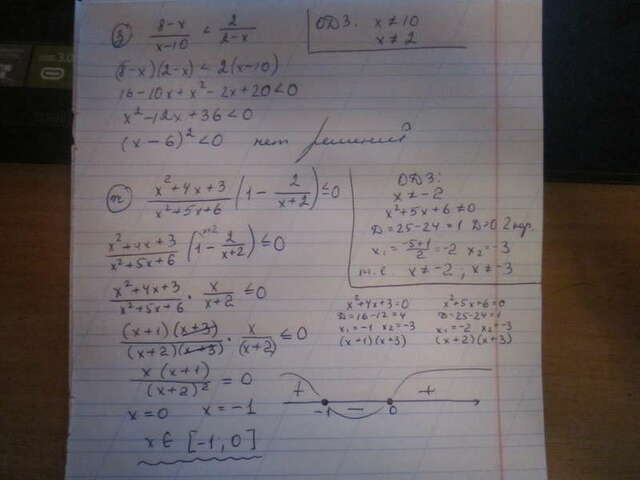 з) (8-x)/(x-10) < 2/(2-x)
ОДЗ. x ≠ 10
x ≠ 2
(8-x)(2-x) < 2(x-10)
16-10x+x²-2x+20<0
x²-12x+36<0
(x-6)²<0 нет решений
m) (x²+4x+3)/(x²+5x+6) (1 - 2/(x+2)) ≤ 0
ОДЗ:
x ≠ -2
x²+5x+6 ≠ 0
D = 25-24 = 1 D>0 2 кор.
x₁ = (-5+1)/2 = -2 x₂ = -3
т.е. x ≠ -2; x ≠ -3
(x²+4x+3)/(x²+5x+6) (1 - 2/(x+2)) ≤ 0
(x²+4x+3)/(x²+5x+6) · x/(x+2) ≤ 0
x²+4x+3=0
D=16-12=4
x₁=-1 x₂=-3
(x+1)(x+3)
x²+5x+6=0
D=25-24=1
x₁=-2 x₂=-3
(x+2)(x+3)
(x+1)(x+3)/(x+2)(x+3) · x/(x+2) ≤ 0
x(x+1)/(x+2)² = 0
x=0 x=-1
+ -1 - 0 +
x ∈ [-1; 0]